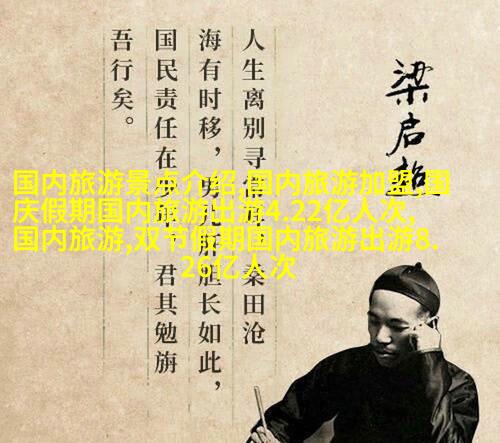 人生离别寻常 桑田沧
海有时移，男儿肝胆长如此，
国民责任在 君其勉旃
吾行矣。
梁启超
国内旅游景点介绍,国内旅游加盟,国
庆假期国内旅游出游4.22亿人次,
国内旅游,双节假期国内旅游出游8.
26亿人次